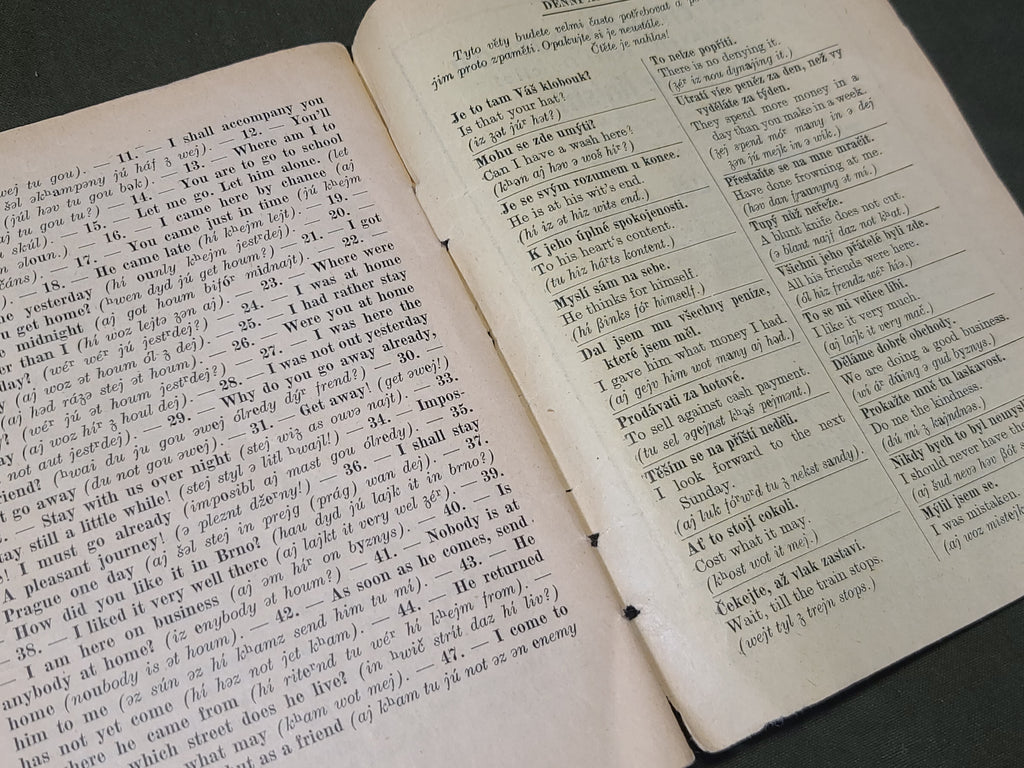 11. — I shall accompany you
wej tu gou). — 12. — You'll
šəl əkʰampəny jú háj ʒ wej). — 13. — Where am I to
(júl həv tu gou bək). — 14. — You are to go to school
aj tu gou tu?) — 15. — Let me go. Let him alone. (let
skúl). — 16. — I came here by chance (aj
əloun.) — 17. — You came just in time (jú kʰejm
čáns). — 18. — He came late (hí kʰejm lejt). — 19. —
yesterday (hí ounly kʰejm jestʳdej) — 20. —
get home? (ʰwen dyd jú get houm?) — 21. — I got
midnight (aj got houm bifóʳ midnajt). — 22. —
than I (hí woz lejtə ʒən aj). — 23. — Where were
day? (wéʳ wéʳ jú jestʳdej?) — 24. — I was at home
(aj woz ət houm ól ʒ dej). — 25. — I had rather stay
(aj həd ráʒə stej ət houm). — 26. — Were you at home
(wéʳ jú ət houm jestʳdej?) — 27. — I was here the
(aj woz híʳ ʒ houl dej). — 28. — I was not out yesterday
not aut jestʳdej) — 29. — Why do you go away already,
friend? (ʰwai du ju gou əwej ólredy dýʳ frend?) — 30. —
go away (du not gou əwej). — 31. — Get away! (get əwej!)
— Stay with us over night (stej wiʒ as ouvə najt). — 33.
stay still a little while! (stej styl ə litl ʰwajl!) — 34. — Impos-
I must go already (imposibl aj mast gou ólredy). — 35.
A pleasant journey! (ə pleznt džəʳny!) — 36. — I shall stay
Prague one day (aj šəl stej in prejg (prág) wan dej). — 37.
How did you like it in Brno? (hau dyd jú lajk it in brno?)
— 38. — I liked it very well there (aj lajkt it very wel ʒéʳ). — 39.
— I am here on business (aj əm híʳ on byznys). — 40. — Is
anybody at home? (iz enybody ət houm?) — 41. — Nobody is at
home (noubody is ət houm). — 42. — As soon as he comes, send
him to me (əz sún əz hí kʰamz send him tu mí) — 43. — He
has not yet come (hí həz not jet kʰam). — 44. — He returned
where he came from (hí ritəʳnd tu wéʳ hí kʰejm from). —
which street does he live? (in ʰwič strít daz hí liv?)
what may (kʰam wot mej). — 47. — I come to
but as a friend (aj kʰam tu jú not əz ən enemy
DENNÍ
Tyto věty budete velmi často potřebovat a
jim proto zpaměti. Opakujte si je neustále.
Čtěte je nahlas!
Je to tam Váš klobouk?
Is that your hat?
(iz ʒət júʳ hət?)
Mohu se zde umýti?
Can I have a wash here?
(kʰən aj həv ə woš híʳ?)
Je se svým rozumem u konce.
He is at his wit's end.
(hí iz ət hiz wits end.)
K jeho úplné spokojenosti.
To his heart's content.
(tu hiz hárts kontent.)
Myslí sám na sebe.
He thinks for himself.
(hí þinks fóʳ himself.)
Dal jsem mu všechny peníze,
které jsem měl.
I gave him what money I had.
(aj gejv him wot many aj həd.)
Prodávati za hotové.
To sell against cash payment.
(tu sel əgejnst kʰəš pejmənt.)
Těším se na příští neděli.
I look forward to the next
Sunday.
(aj luk fóʳwəʳd tu ʒ nekst sandy).
Ať to stojí cokoli.
Cost what it may.
(kʰost wot it mej.)
Čekejte, až vlak zastaví.
Wait, till the train stops.
(wejt tyl ʒ trejn stops.)
To nelze popříti.
There is no denying it.
(ʒéʳ iz nou dynajing it.)
Utratí více peněz za den, než vy
vyděláte za týden.
They spend more money in a
day than you make in a week.
(ʒej spend móʳ many in ə dej
ʒən jú mejk in ə wík.)
Přestaňte se na mne mračit.
Have done frowning at me.
(həv dan fraunyng ət mi.)
Tupý nůž neřeže.
A blunt knife does not cut.
(ə blant najf daz not kʰat.)
Všichni jeho přátelé byli zde.
All his friends were here.
(ól hiz frendz wéʳ hiə.)
To se mi velice líbí.
I like it very much.
(aj lajk it very mač.)
Děláme dobré obchody.
We are doing a good business.
(wí áʳ dúing ə gud byznys.)
Prokažte mně tu laskavost.
Do me the kindness.
(dú mi ʒ kajndnəs.)
Nikdy bych to byl nemysl
I should never have th
(aj šud nevə həv þót
Mýlil jsem se.
I was mistaken.
(aj woz mistejk